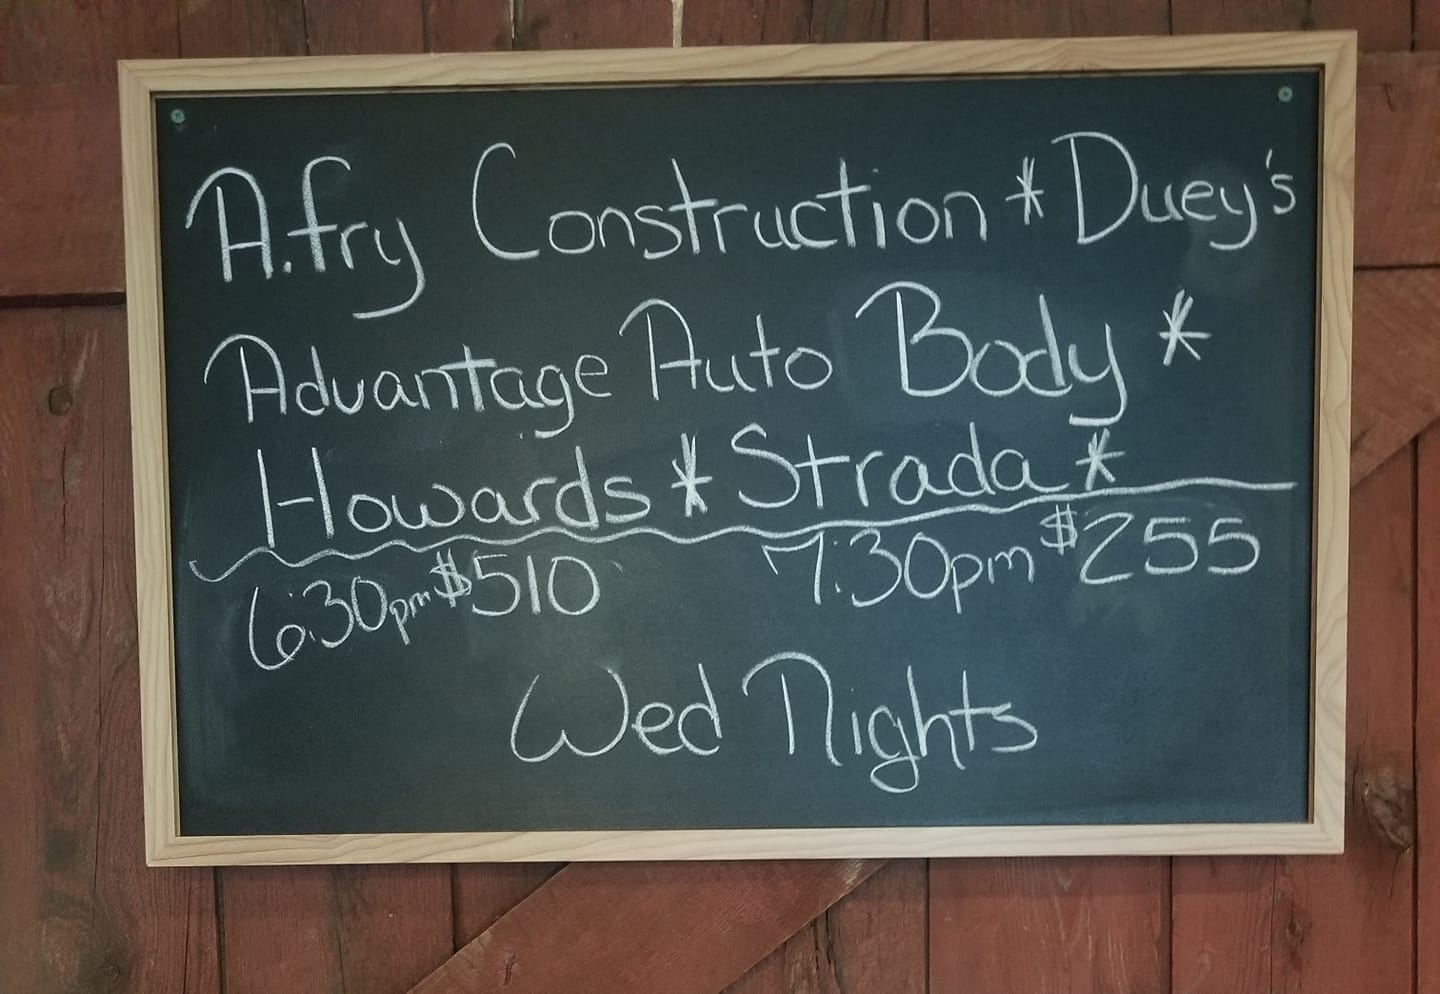 A.fry Construction * Duey's
Advantage Auto Body *
Howards * Strada *
6:30pm $510 7:30pm $255
Wed Nights